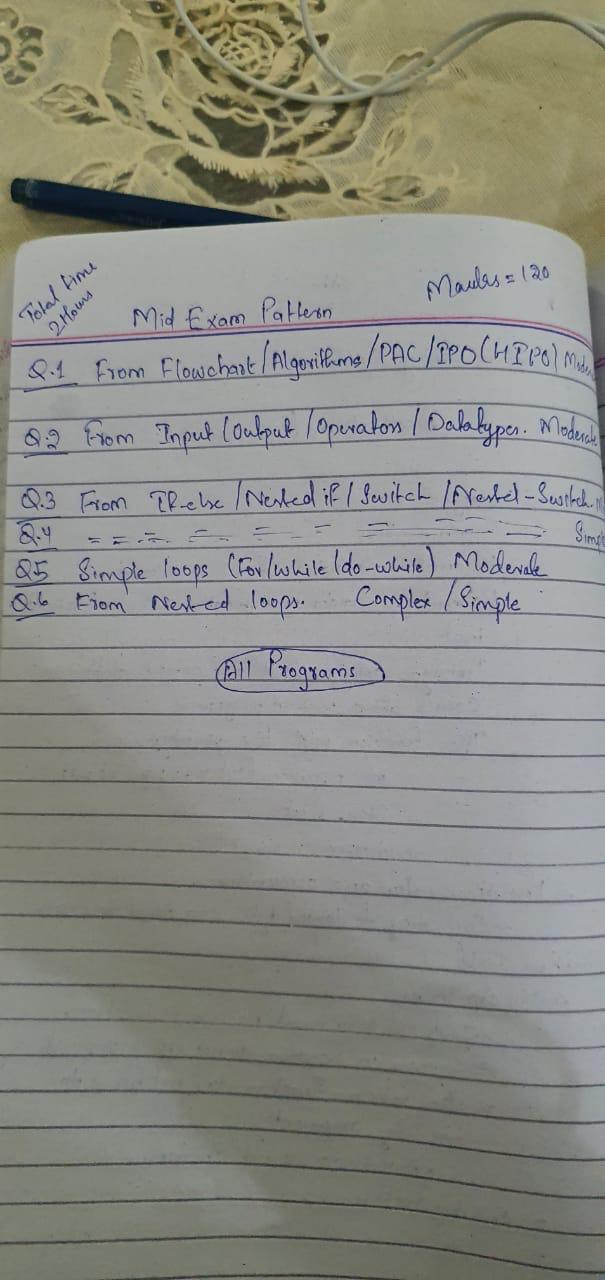 Total time
2 Hours
Marks = 120
Mid Exam Pattern
Q.1 From Flowchart / Algorithms / PAC / IPO (HIPO) Mode
Q.2 From Input / Output / Operators / Datatypes. Moderate
Q.3 From IF-else / Nested if / Switch / Nested-Switch.
Q.4 = = = = = = = = = Simp
Q5 Simple loops (For / while / do-while) Moderate
Q.6 From Nested loops. Complex / Simple
All Programs